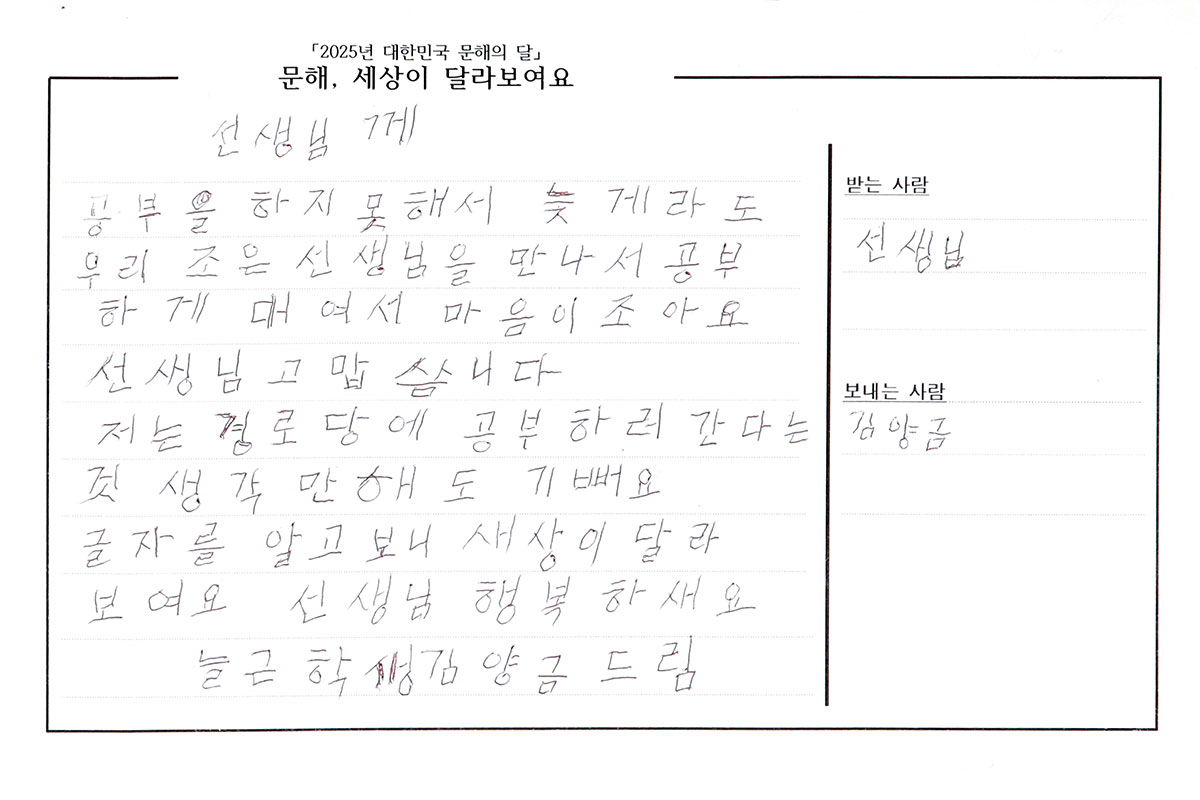 「2025년 대한민국 문해의 달」
문해, 세상이 달라보여요
선생님 께
공부을 하지 못해서 늦게라도
우리 조은 선생님을 만나서 공부
하게 대여서 마음이 조아요
선생님 고맙습니다
저는 경로당에 공부하러 간다는
것 생각만해도 기뻐요
글자를 알고보니 새상이 달라
보여요 선생님 행복하새요
늘근 학생김양금 드림
받는 사람
선생님
보내는 사람
김양금